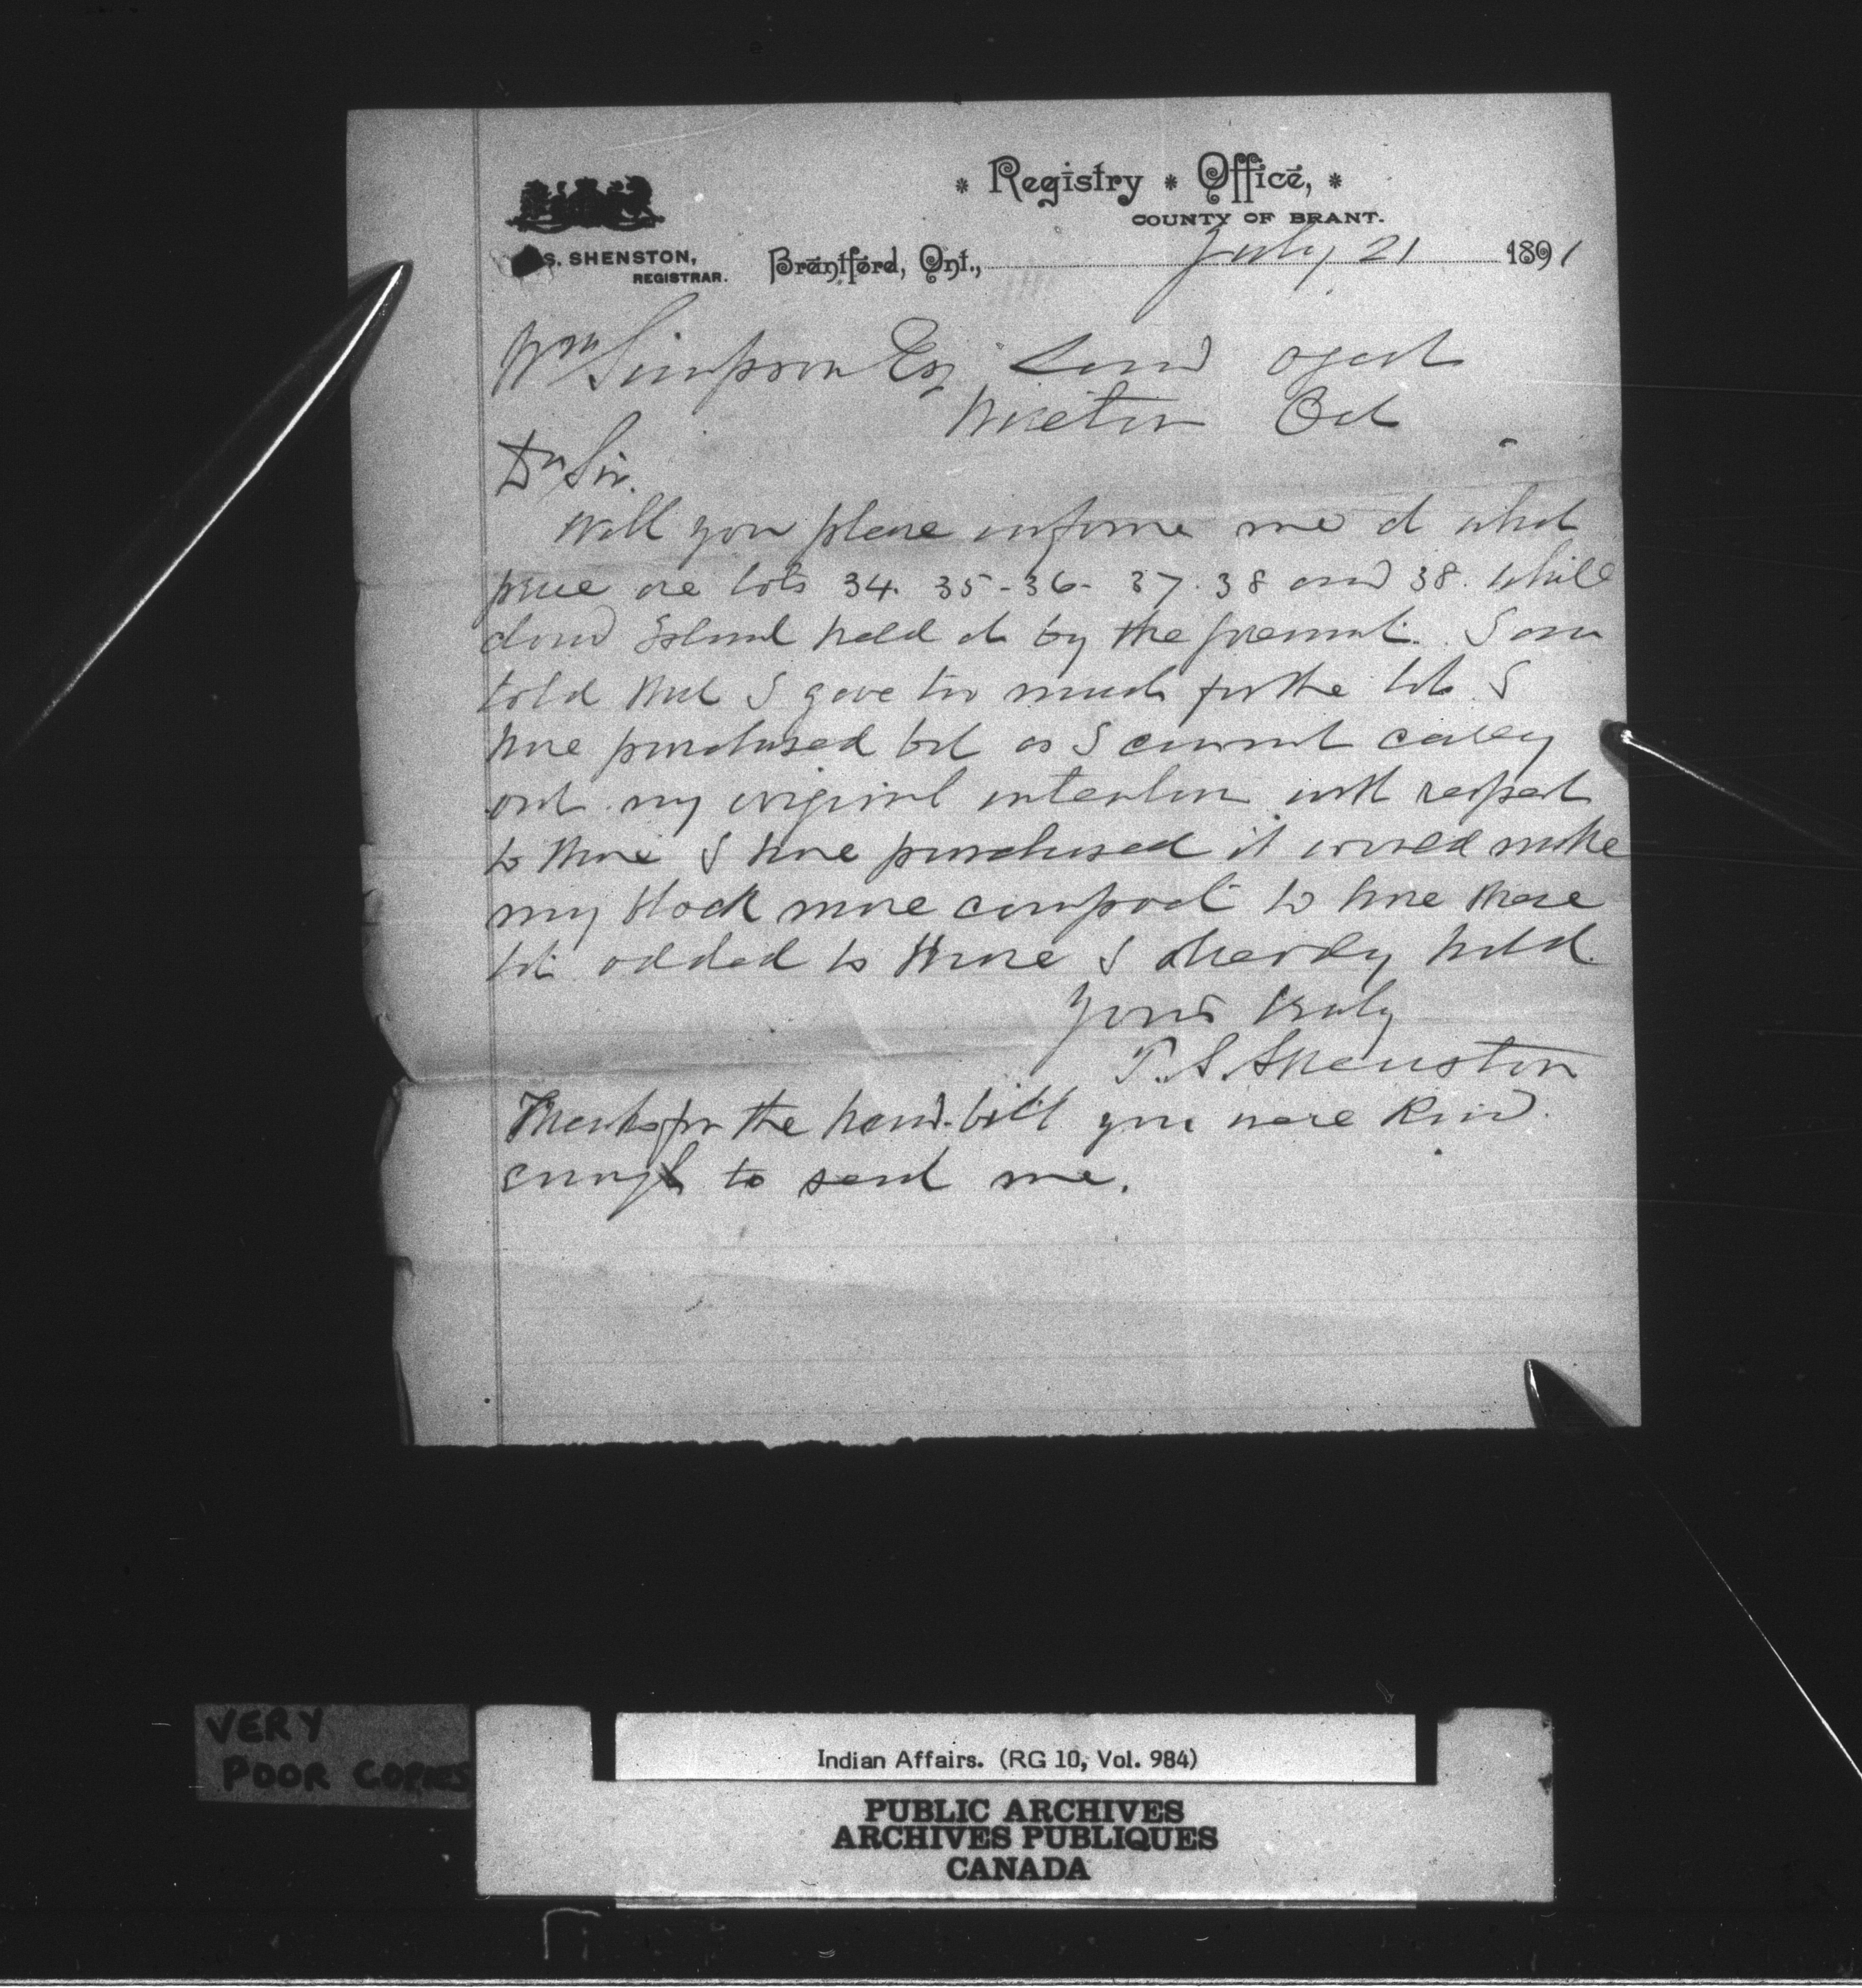 * Registry * Office, *
COUNTY OF BRANT.
S. SHENSTON,
REGISTRAR.
Brantford, Ont., July 21 1891
Wm Simpson Esq Land agent
Wiarton Ont
Dr Sir.
Will you please informe me at what
price are lots 34. 35-36- 37. 38 and 38. While
cloud Island held at by the present. I am
told that I gave too much for the lots I
have purchased but as I cannot carry
out my original intention with respect
to those I have purchased it would make
my block more compact to have these
lots added to those I already hold.
Yours truly
T. S. Shenston
Thanks for the hand-bill you were kind
enough to send me.
VERY
POOR COPIES
Indian Affairs. (RG 10, Vol. 984)
PUBLIC ARCHIVES
ARCHIVES PUBLIQUES
CANADA